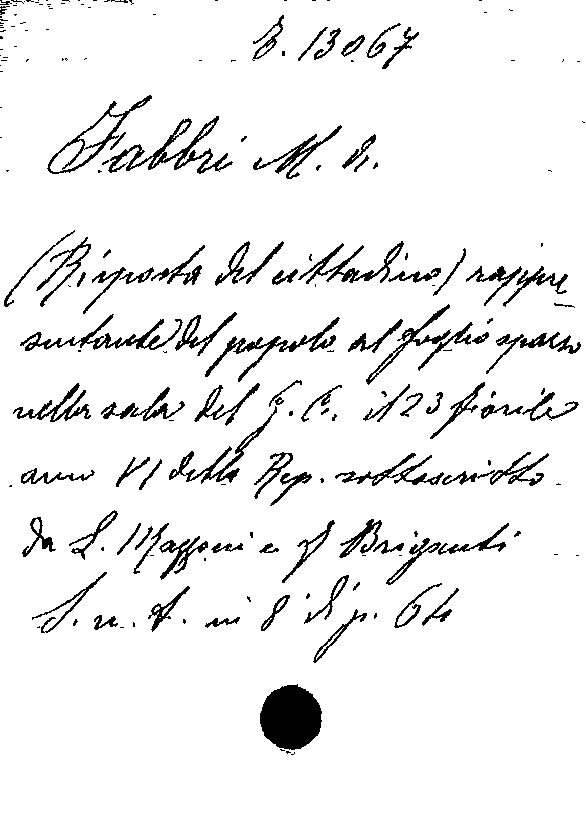 E. 13067
Fabbri M. A.
(Risposta del cittadino) rappre_
sentante del popolo al foglio sparso
nella sala del G. C. il 23 fiorile
anno VI della Rep. sottoscritto
da L. Massoni e Briganti
S. n. t. in 8 di p. 64